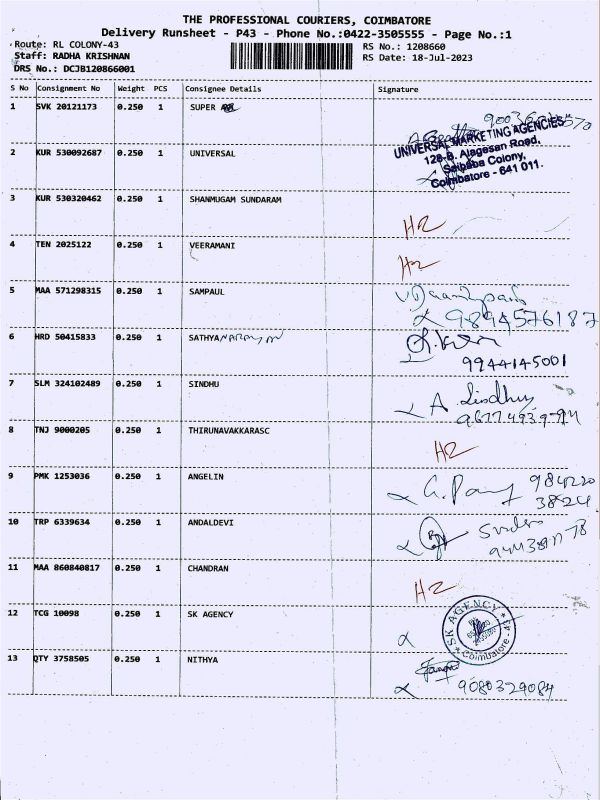 THE PROFESSIONAL COURIERS, COIMBATORE
Delivery Runsheet - P43 - Phone No.:0422-3505555 - Page No.:1
Route: RL COLONY-43 RS No.: 1208660
Staff: RADHA KRISHNAN RS Date: 18-Jul-2023
DRS No.: DCJB120866001
S No Consignment No Weight PCS Consignee Details Signature
1 SVK 20121173 0.250 1 SUPER
UNIVERSAL MARKETING AGENCIES
128-B. Alagesan Road,
Saibaba Colony,
Coimbatore - 641 011.
2 KUR 530092687 0.250 1 UNIVERSAL
3 KUR 530320462 0.250 1 SHANMUGAM SUNDARAM
H2
4 TEN 2025122 0.250 1 VEERAMANI
H2
5 MAA 571298315 0.250 1 SAMPAUL
9894576187
6 HRD 50415833 0.250 1 SATHYANARAYAN
9944145001
7 SLM 324102489 0.250 1 SINDHU
A. Sindhu
8 TNJ 9000205 0.250 1 THIRUNAVAKKARASC
H2
9 PMK 1253036 0.250 1 ANGELIN
984220
3824
10 TRP 6339634 0.250 1 ANDALDEVI
11 MAA 860840817 0.250 1 CHANDRAN
H2
12 TCG 10098 0.250 1 SK AGENCY
SK AGENCY
Coimbatore - 43
13 QTY 3758505 0.250 1 NITHYA
9080329084